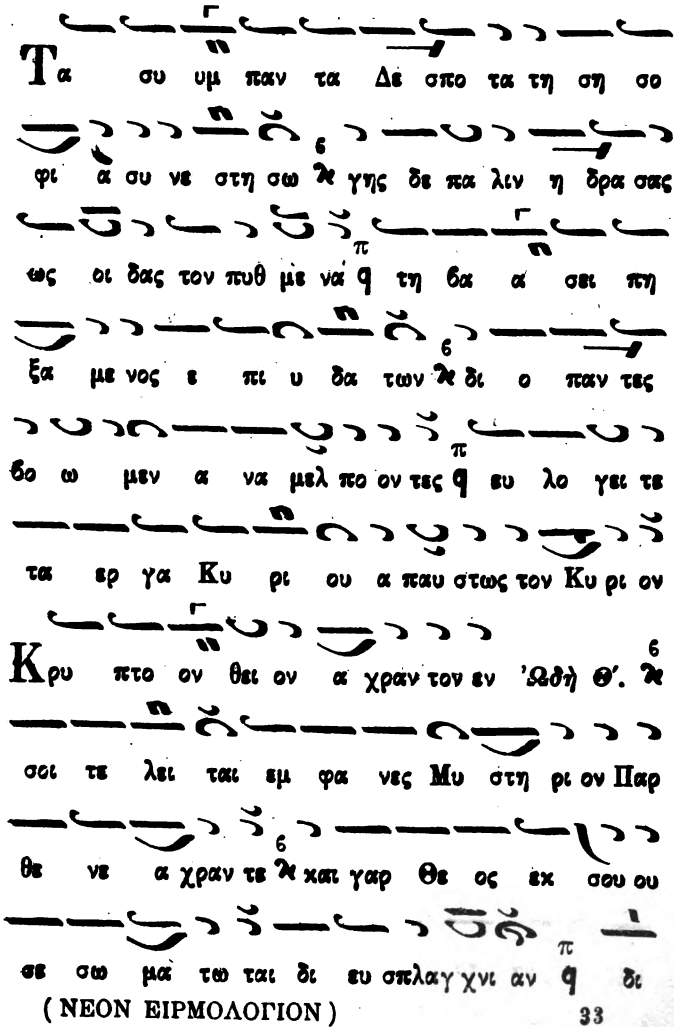 Τα συ υμ παν τα Δε σπο τα τη ση σο
φι α συ νε στη σω γης δε πα λιν η δρα σας
ως οι δας τον πυθ με να τη βα α σει πη
ξα με νος ε πι υ δα των δι ο παν τες
βο ω μεν α να μελ πο ον τες ευ λο γει τε
τα ερ γα Κυ ρι ου α παυ στως τον Κυ ρι ον
Κρυ πτο ον θει ον α χραν τον εν ᾿Ωδὴ Θ΄.
σοι τε λει ται εμ φα νες Μυ στη ρι ον Παρ
θε νε α χραν τε και γαρ Θε ος εκ σου ου
σε σω μα τω ται δι ευ σπλαγ χνι αν δι
( ΝΕΟΝ ΕΙΡΜΟΛΟΓΙΟΝ ) 33